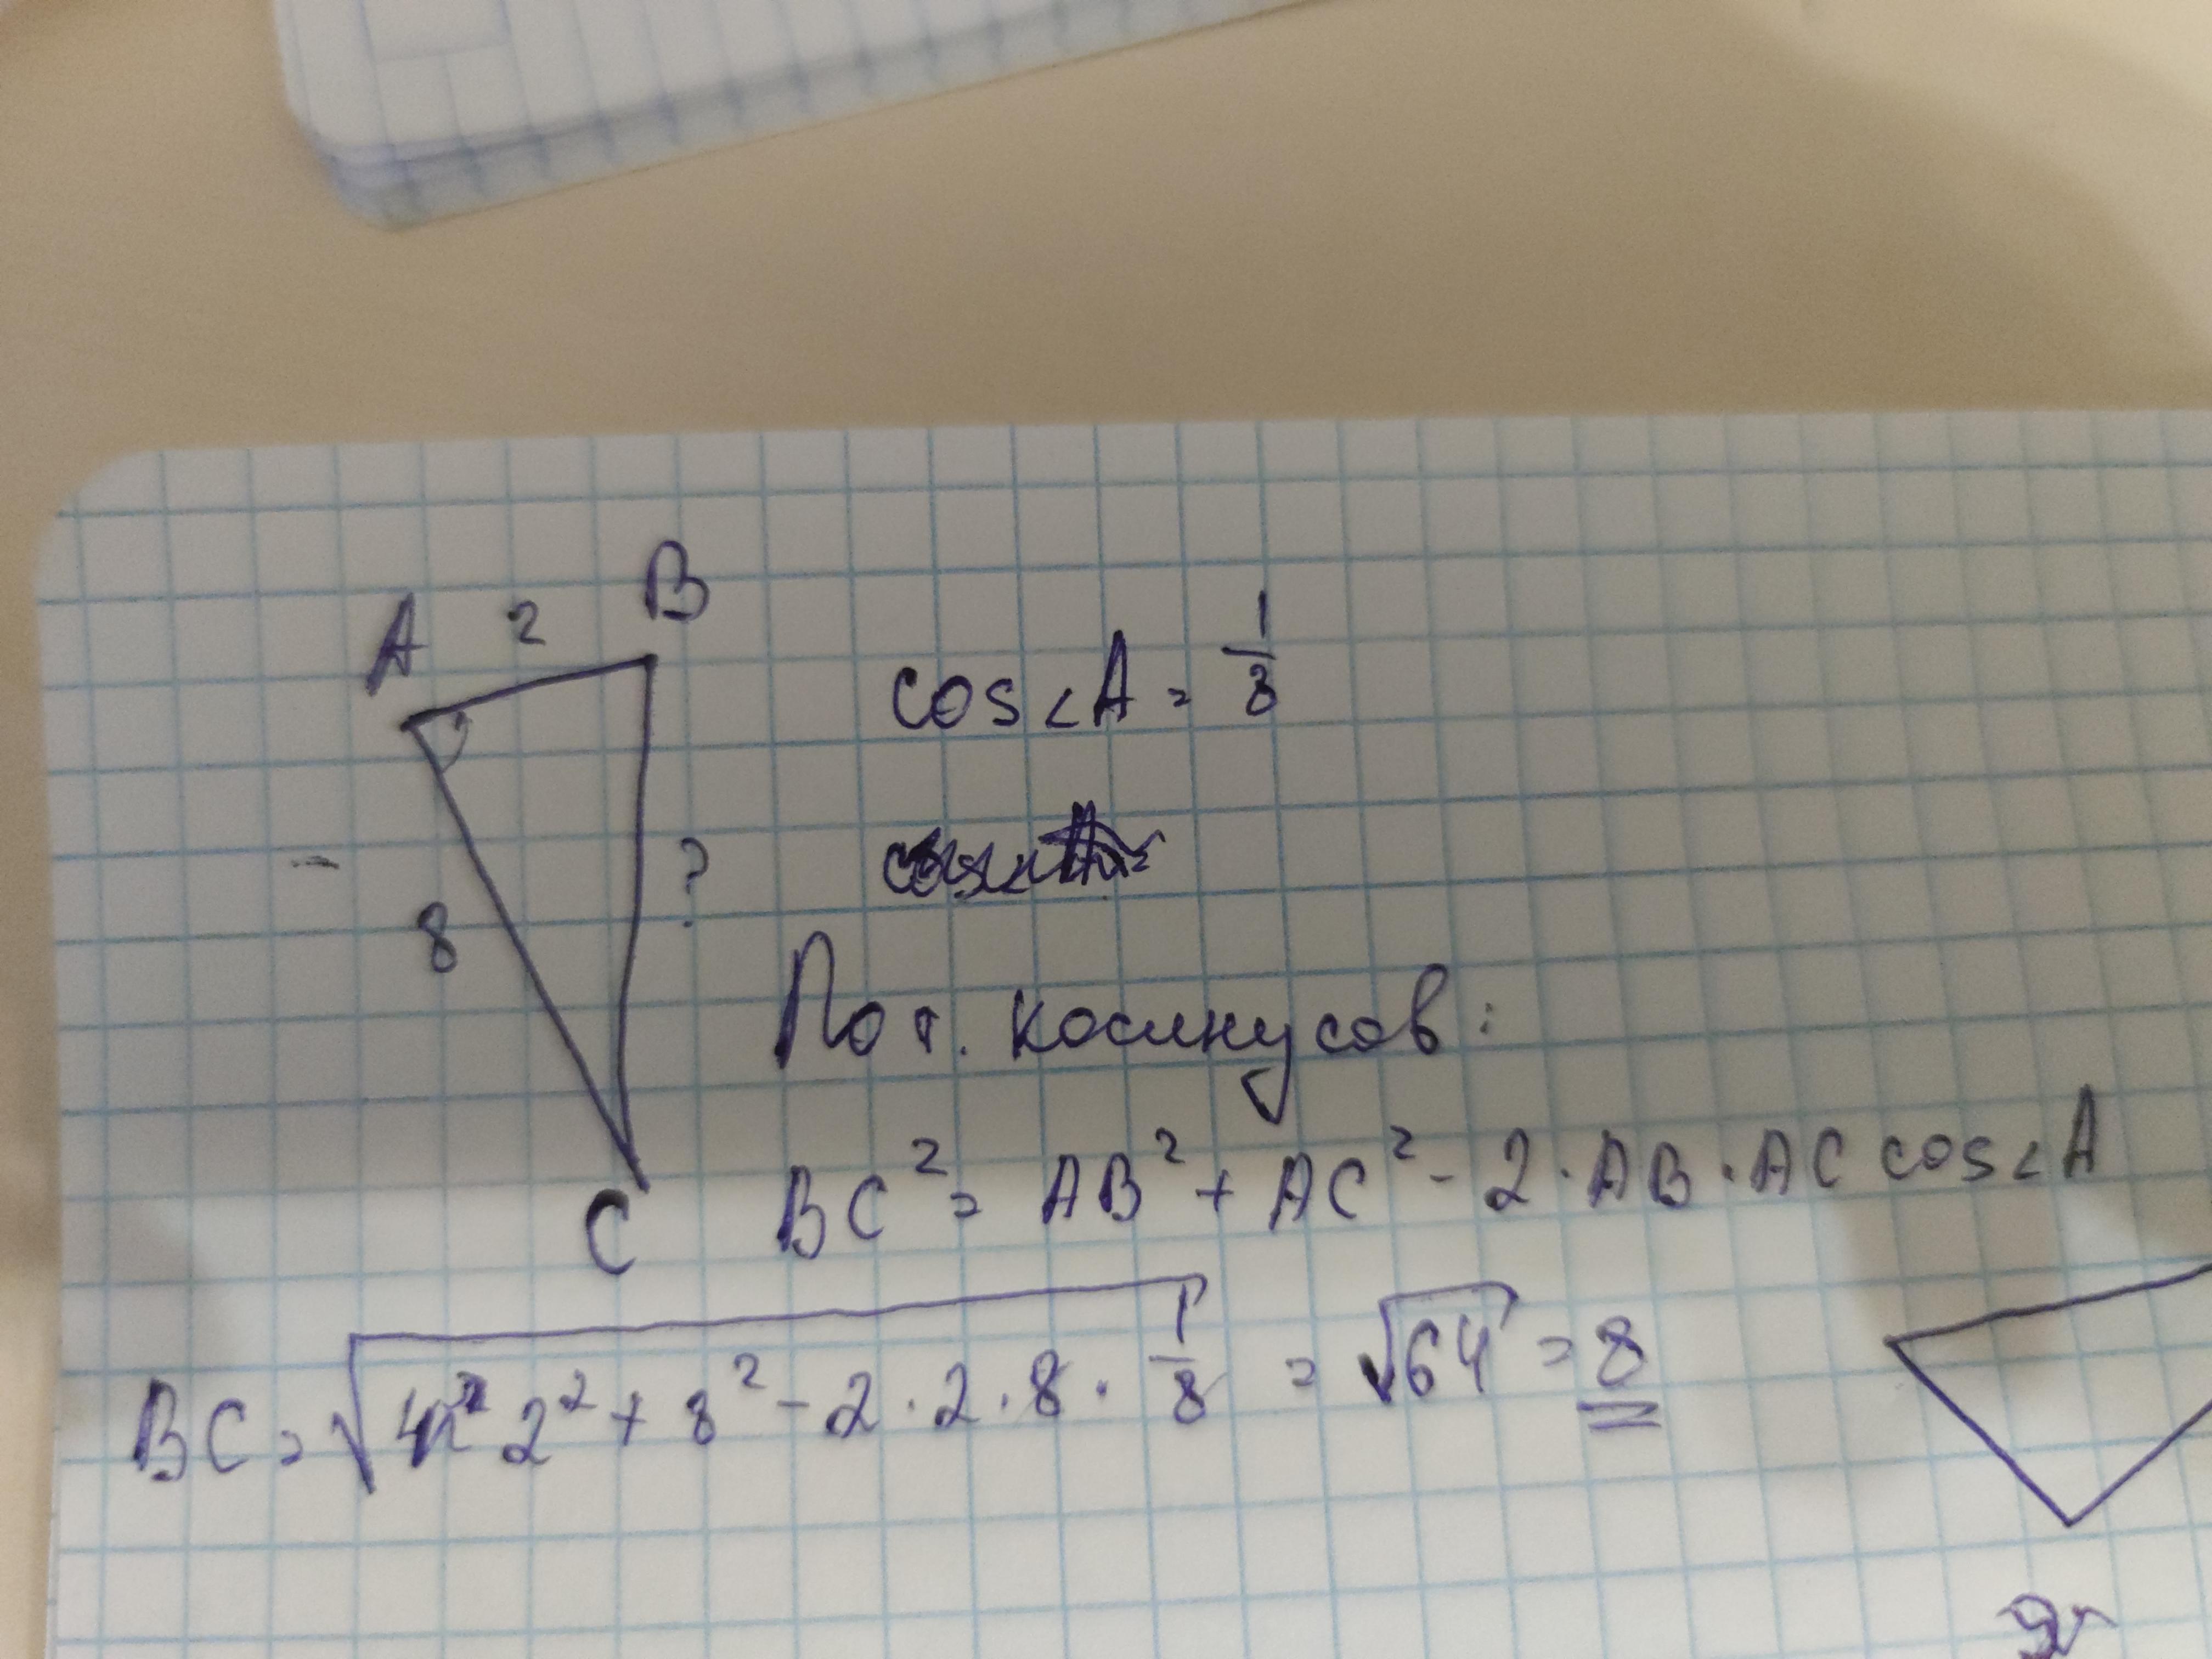 A 2 B
cos∠A = 1/8
8 ?
По т. косинусов:
C BC² = AB² + AC² - 2·AB·AC cos∠A
BC = √(2² + 8² - 2·2·8·1/8) = √64 = 8